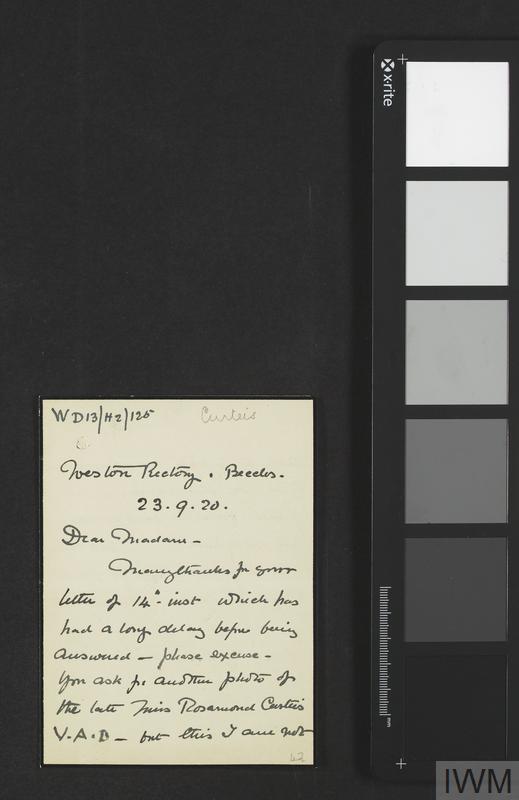 WD13/H2/125 Curteis
Weston Rectory. Beccles.
23.9.20.
Dear Madam –
Many thanks for your
letter of 14th inst which has
had a long delay before being
answered – please excuse –
You ask for another photo of
the late Miss Rosamond Curteis
V.A.D – but this I am not
42
x-rite
mm
IWM